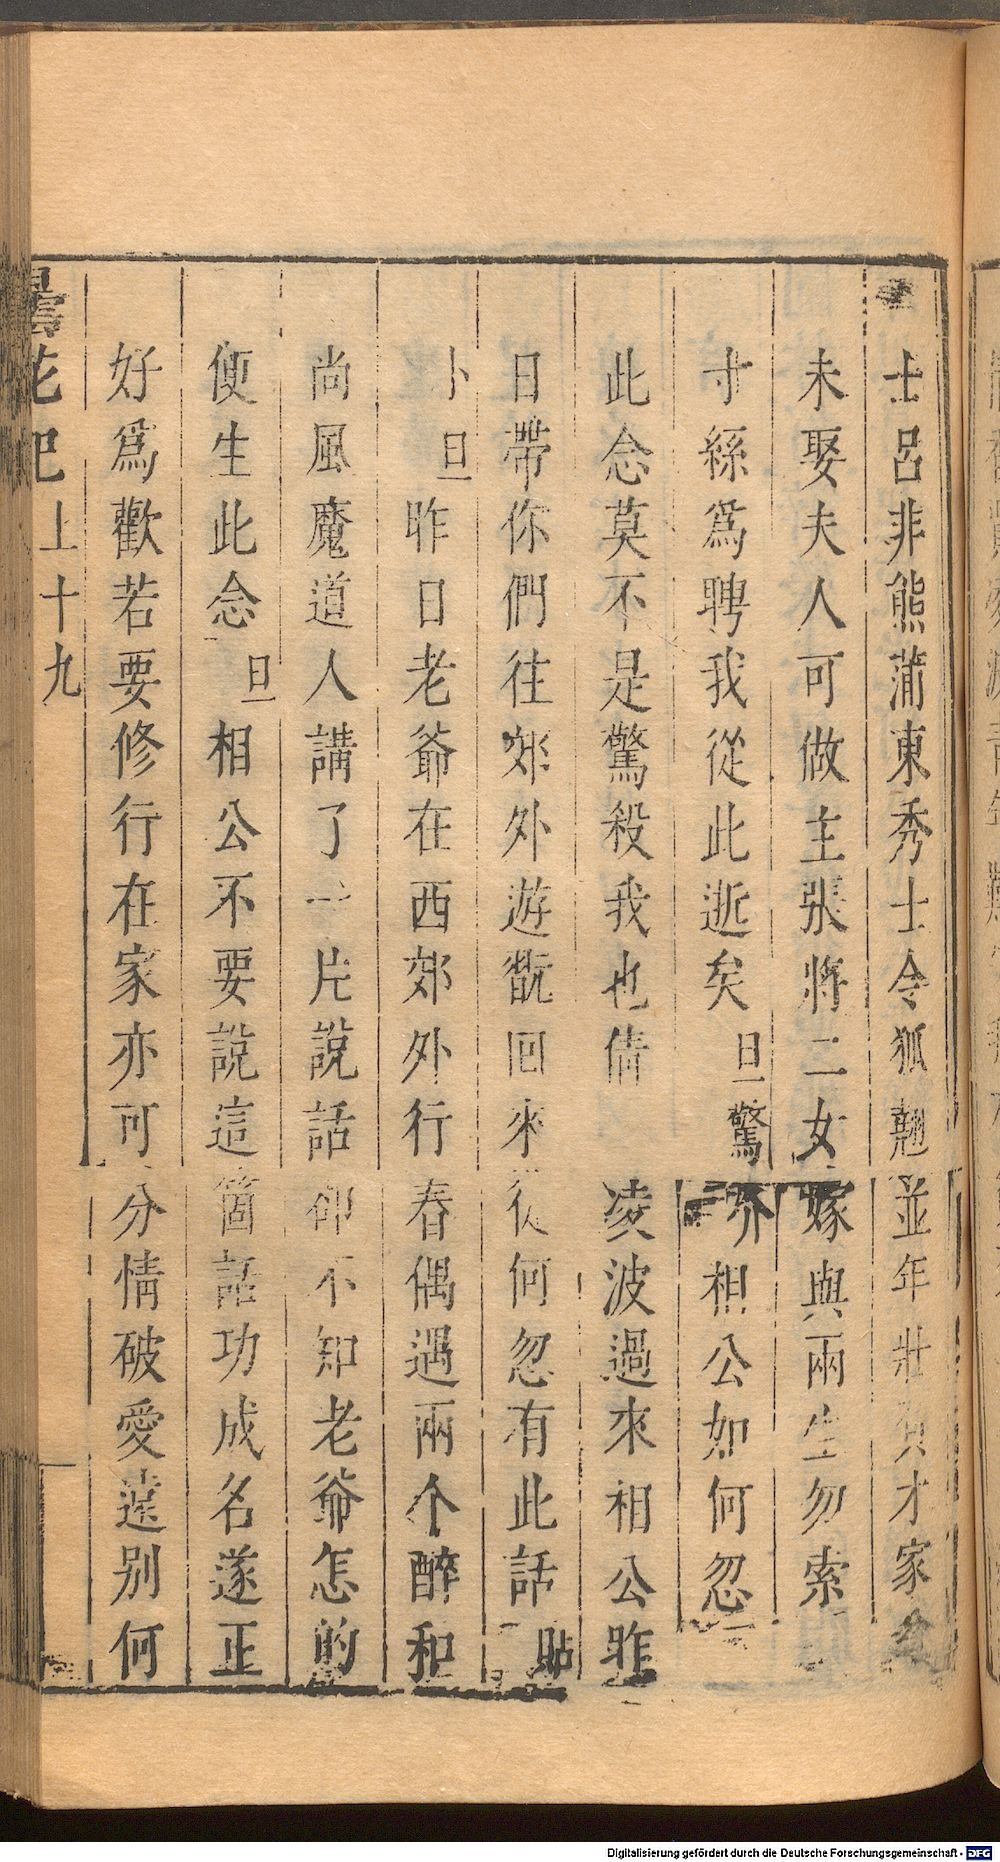 士呂非熊蒲東秀士令狐翹並年壯負才家貧
未娶夫人可做主張將二女嫁與兩生勿索
寸絲爲聘我從此逝矣旦驚介相公如何忽
此念莫不是驚殺我也倩凌波過來相公昨
日帶你們往郊外遊翫回來從何忽有此話貼
卜旦昨日老爺在西郊外行春偶遇兩个醉和
尚風魔道人講了一片說話却不知老爺怎的
便生此念旦相公不要說這箇話功成名遂正
好爲歡若要修行在家亦可分情破愛遠別何
曇花記上十九
Digitalisierung gefördert durch die Deutsche Forschungsgemeinschaft - DFG